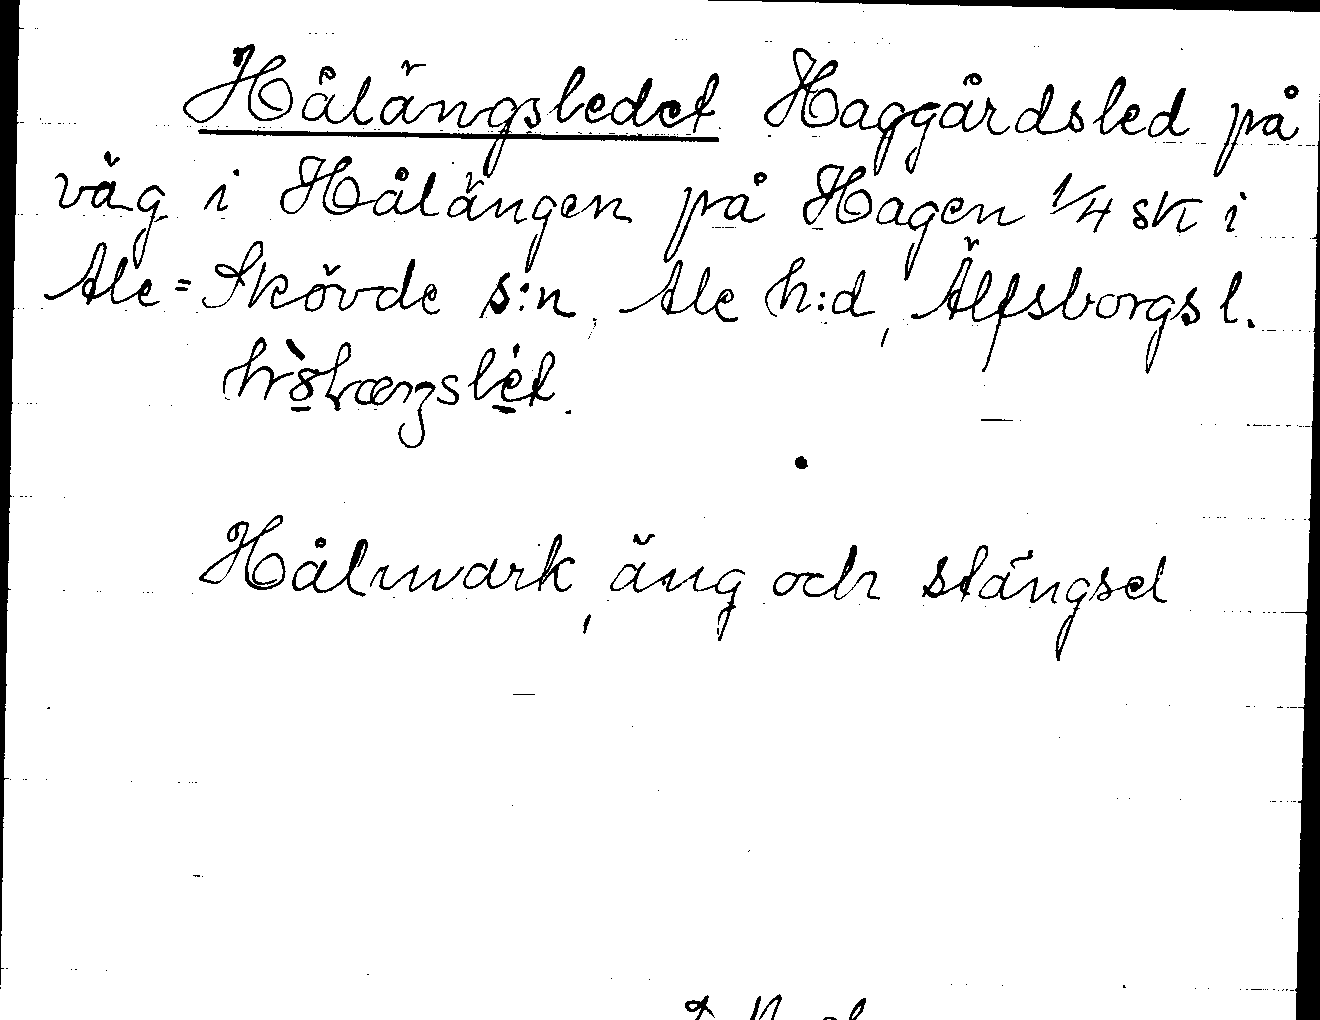 Hålängsledet Haggårdsled på
väg i Hålängen på Hagen 1/4 sk i
Ale=Skövde s:n, Ale h:d, Älfsborgs l.
Hålmark, äng och stängsel